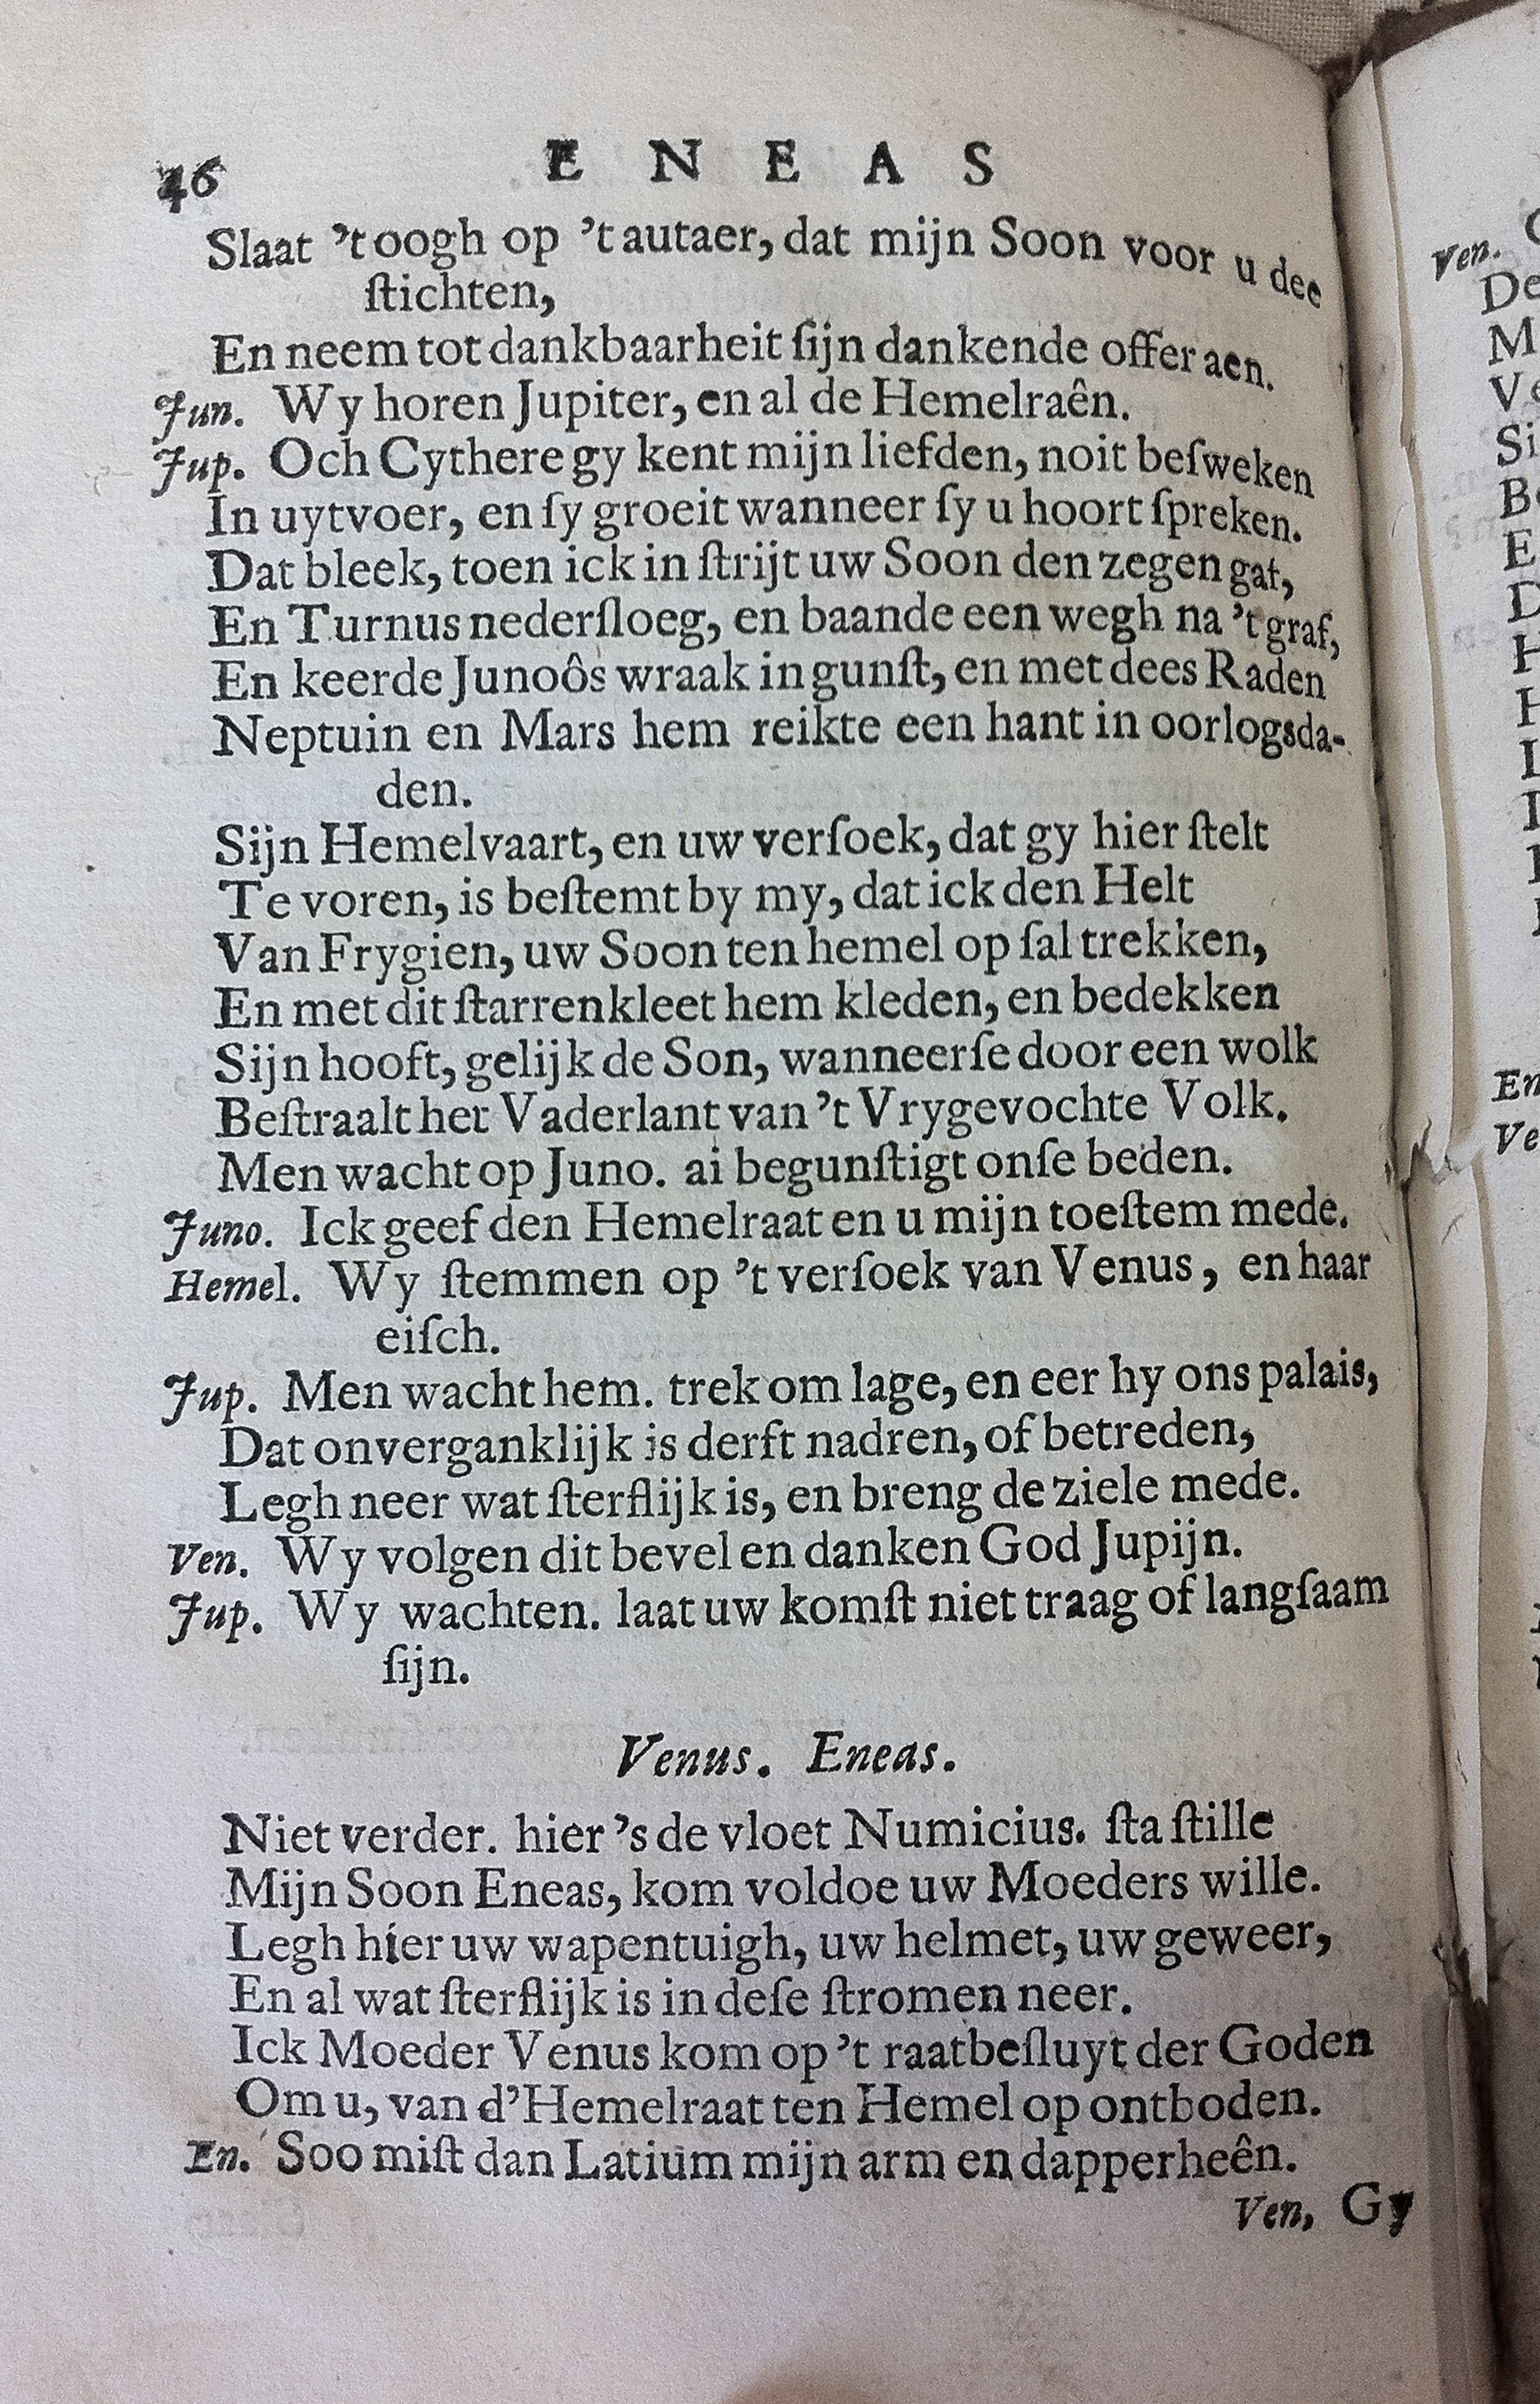 46 E N E A S
Slaat 't oogh op 't autaer, dat mijn Soon voor u dee
ſtichten,
En neem tot dankbaarheit ſijn dankende offer aen.
Jun. Wy horen Jupiter, en al de Hemelraên.
Jup. Och Cythere gy kent mijn liefden, noit beſweken
In uytvoer, en ſy groeit wanneer ſy u hoort ſpreken.
Dat bleek, toen ick in ſtrijt uw Soon den zegen gaf,
En Turnus nederſloeg, en baande een wegh na 't graf,
En keerde Junoôs wraak in gunſt, en met dees Raden
Neptuin en Mars hem reikte een hant in oorlogsda-
den.
Sijn Hemelvaart, en uw verſoek, dat gy hier ſtelt
Te voren, is beſtemt by my, dat ick den Helt
Van Frygien, uw Soon ten hemel op ſal trekken,
En met dit ſtarrenkleet hem kleden, en bedekken
Sijn hooft, gelijk de Son, wanneerſe door een wolk
Beſtraalt het Vaderlant van 't Vrygevochte Volk.
Men wacht op Juno. ai begunſtigt onſe beden.
Juno. Ick geef den Hemelraat en u mijn toeſtem mede.
Hemel. Wy ſtemmen op 't verſoek van Venus, en haar
eiſch.
Jup. Men wacht hem. trek om lage, en eer hy ons palais,
Dat onverganklijk is derft nadren, of betreden,
Legh neer wat ſterflijk is, en breng de ziele mede.
Ven. Wy volgen dit bevel en danken God Jupijn.
Jup. Wy wachten. laat uw komſt niet traag of langſaam
ſijn.
Venus. Eneas.
Niet verder. hier 's de vloet Numicius. ſta ſtille
Mijn Soon Eneas, kom voldoe uw Moeders wille.
Legh hier uw wapentuigh, uw helmet, uw geweer,
En al wat ſterflijk is in deſe ſtromen neer.
Ick Moeder Venus kom op 't raatbeſluyt der Goden
Om u, van d'Hemelraat ten Hemel op ontboden.
En. Soo miſt dan Latium mijn arm en dapperheên.
Ven, Gy
Ven.
De
M
Ve
Si
Be
E
D
H
H
En
Ve